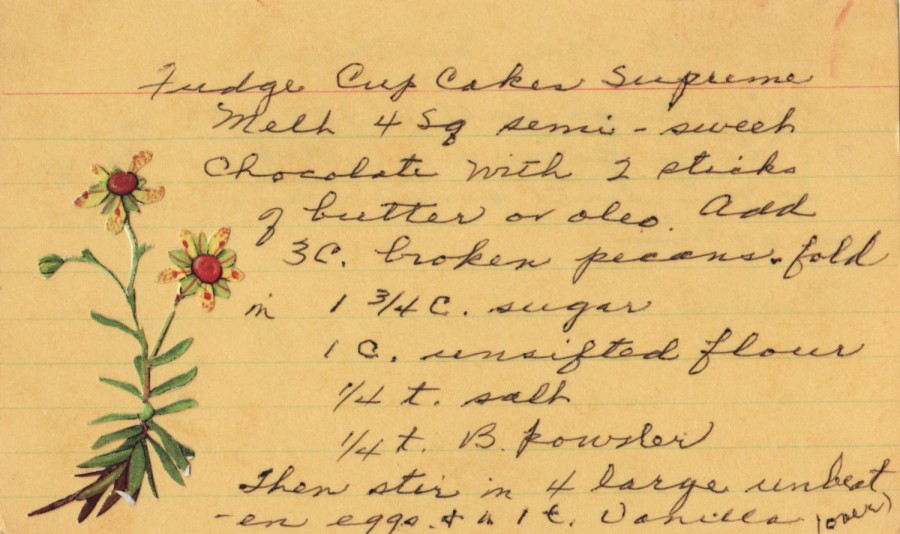 Fudge Cup Cakes Supreme
Melt 4 Sq semi-sweet
Chocolate with 2 sticks
of butter or oleo. Add
3C. broken pecans. fold
in 1 3/4 C. sugar
1 C. unsifted flour
1/4 t. salt
1/4 t. B. powder
Then stir in 4 large unbeat
-en eggs. & 1 t. Vanilla (over)